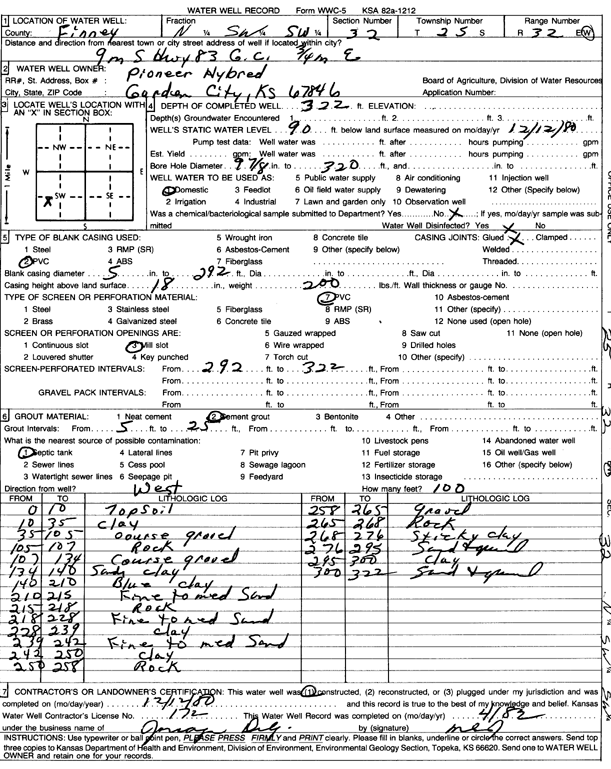 WATER WELL RECORD Form WWC-5 KSA 82a-1212
1 LOCATION OF WATER WELL: Fraction Section Number Township Number Range Number
County: Finney N ¼ SW ¼ SW ¼ 32 T 25 S R 32 E(W)
Distance and direction from nearest town or city street address of well if located within city?
9 m S Hwy 83 G.C. 3/4 m E
2 WATER WELL OWNER: Pioneer Hybred
RR#, St. Address, Box # : Board of Agriculture, Division of Water Resources
City, State, ZIP Code : Garden City, KS 67846 Application Number:
3 LOCATE WELL'S LOCATION WITH AN "X" IN SECTION BOX:
N
NW NE
W E
X SW SE
S
1 Mile
4 DEPTH OF COMPLETED WELL 322 ft. ELEVATION:
Depth(s) Groundwater Encountered 1. ft. 2. ft. 3. ft.
WELL'S STATIC WATER LEVEL 90 ft. below land surface measured on mo/day/yr 12/12/80
Pump test data: Well water was ft. after hours pumping gpm
Est. Yield gpm: Well water was ft. after hours pumping gpm
Bore Hole Diameter 9 7/8 in. to 320 ft., and in. to ft.
WELL WATER TO BE USED AS: 5 Public water supply 8 Air conditioning 11 Injection well
1 Domestic 3 Feedlot 6 Oil field water supply 9 Dewatering 12 Other (Specify below)
2 Irrigation 4 Industrial 7 Lawn and garden only 10 Observation well
Was a chemical/bacteriological sample submitted to Department? Yes No X ; If yes, mo/day/yr sample was sub-
mitted Water Well Disinfected? Yes X No
5 TYPE OF BLANK CASING USED: 5 Wrought iron 8 Concrete tile CASING JOINTS: Glued X Clamped
1 Steel 3 RMP (SR) 6 Asbestos-Cement 9 Other (specify below) Welded
2 PVC 4 ABS 7 Fiberglass Threaded
Blank casing diameter 5 in. to 292 ft., Dia in. to ft., Dia in. to ft.
Casing height above land surface 18 in., weight 200 lbs./ft. Wall thickness or gauge No.
TYPE OF SCREEN OR PERFORATION MATERIAL: 7 PVC 10 Asbestos-cement
1 Steel 3 Stainless steel 5 Fiberglass 8 RMP (SR) 11 Other (specify)
2 Brass 4 Galvanized steel 6 Concrete tile 9 ABS 12 None used (open hole)
SCREEN OR PERFORATION OPENINGS ARE: 5 Gauzed wrapped 8 Saw cut 11 None (open hole)
1 Continuous slot 3 Mill slot 6 Wire wrapped 9 Drilled holes
2 Louvered shutter 4 Key punched 7 Torch cut 10 Other (specify)
SCREEN-PERFORATED INTERVALS: From 292 ft. to 322 ft., From ft. to ft.
From ft. to ft., From ft. to ft.
GRAVEL PACK INTERVALS: From ft. to ft., From ft. to ft.
From ft. to ft., From ft. to ft.
6 GROUT MATERIAL: 1 Neat cement 2 Cement grout 3 Bentonite 4 Other
Grout Intervals: From 5 ft. to 25 ft., From ft. to ft., From ft. to ft.
What is the nearest source of possible contamination: 10 Livestock pens 14 Abandoned water well
1 Septic tank 4 Lateral lines 7 Pit privy 11 Fuel storage 15 Oil well/Gas well
2 Sewer lines 5 Cess pool 8 Sewage lagoon 12 Fertilizer storage 16 Other (specify below)
3 Watertight sewer lines 6 Seepage pit 9 Feedyard 13 Insecticide storage
Direction from well? West How many feet? 100
FROM TO LITHOLOGIC LOG FROM TO LITHOLOGIC LOG
0 10 Top Soil 258 265 Gravel
10 35 Clay 265 268 Rock
35 105 Course gravel 268 276 Sticky clay
105 107 Rock 276 295 Sand & gravel
107 134 Course gravel 295 300 Clay
134 140 Sandy clay 300 322 Sand & gravel
140 210 Blue clay
210 215 Fine to med Sand
215 218 Rock
218 228 Fine to med Sand
228 239 Clay
239 242 Fine to med Sand
242 250 Clay
250 258 Rock
7 CONTRACTOR'S OR LANDOWNER'S CERTIFICATION: This water well was (1) constructed, (2) reconstructed, or (3) plugged under my jurisdiction and was
completed on (mo/day/year) 12/12/80 and this record is true to the best of my knowledge and belief. Kansas
Water Well Contractor's License No. 172 This Water Well Record was completed on (mo/day/yr) 4/82
under the business name of by (signature)
INSTRUCTIONS: Use typewriter or ball point pen, PLEASE PRESS FIRMLY and PRINT clearly. Please fill in blanks, underline or circle the correct answers. Send top
three copies to Kansas Department of Health and Environment, Division of Environment, Environmental Geology Section, Topeka, KS 66620. Send one to WATER WELL
OWNER and retain one for your records.
OFFICE USE ONLY